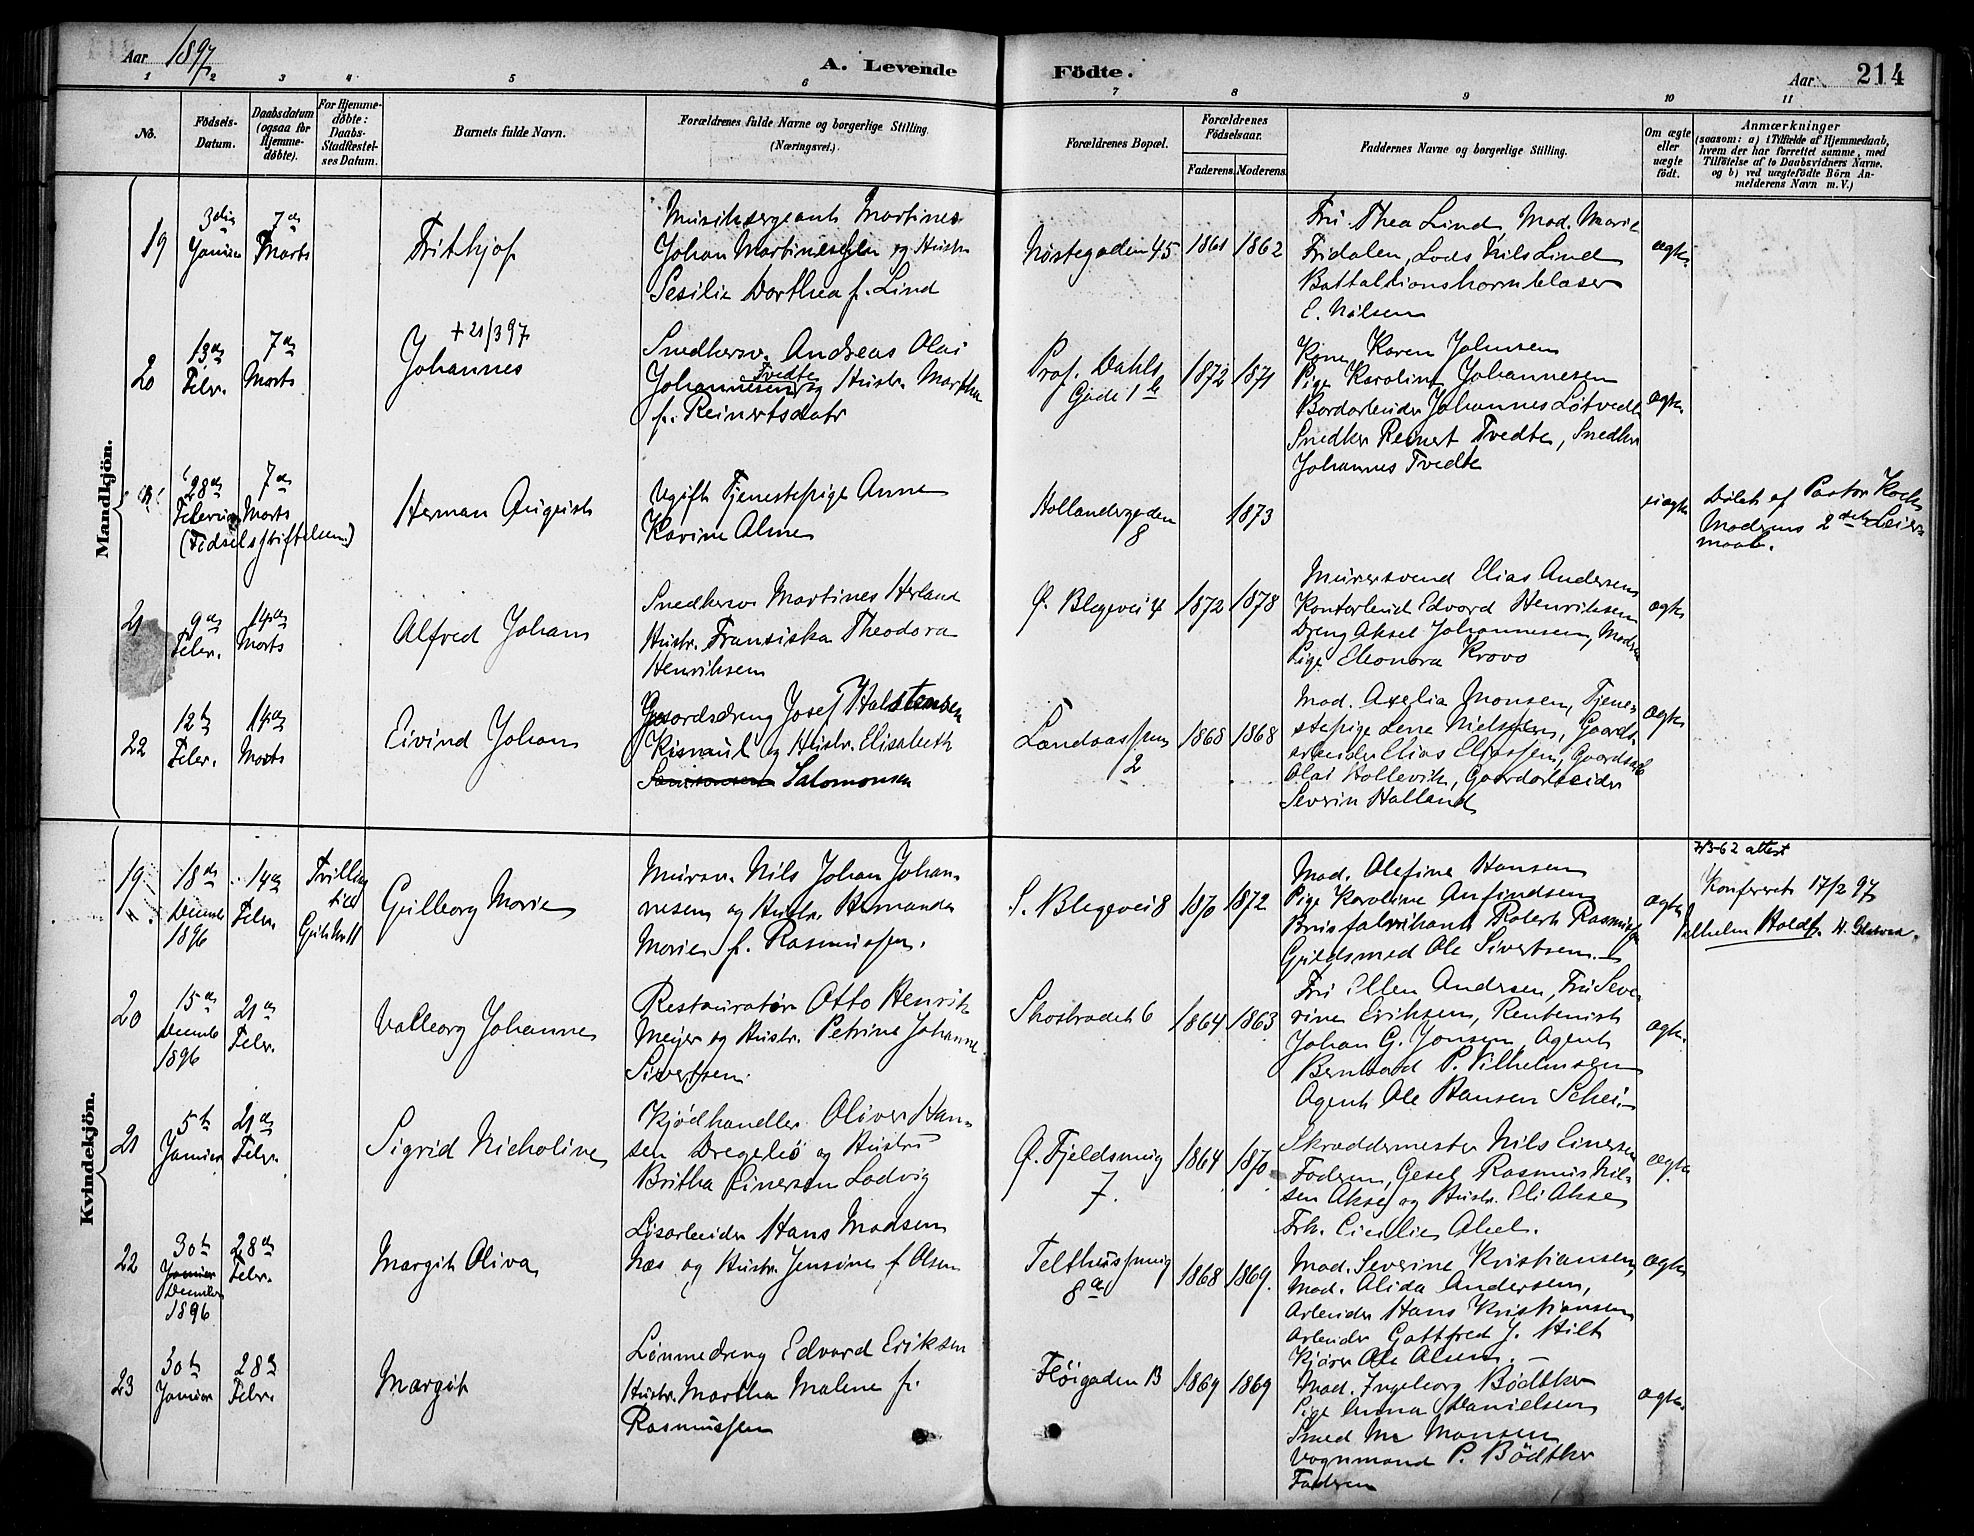 Aar 1897
A. Levende Födte.
Aar 214
1 2 3 4 5 6 7 8 9 10 11
No.
Födsels-Datum.
Daabsdatum (ogsaa for Hjemme-döbte).
For Hjemme-döbte: Daabs-Stadfæstel-ses Datum.
Barnets fulde Navn.
Forældrenes fulde Navne og borgerlige Stilling. (Næringsvei.)
Forældrenes Bopæl.
Forældrenes Födselsaar.
Faderens. Moderens.
Faddernes Navne og borgerlige Stilling.
Om ægte eller uægte födt.
Anmærkninger
(saasom: a) i Tilfælde af Hjemmedaab, hvem der har forrettet samme, med Tilföielse af to Daabsvidners Navne, og b) ved uægtefödte Börn An-melderens Navn m. V.)
Mandkjön.
19
3die Januar
7de Marts
Frithjof
Musiksergeant Martines
Johan Martinessen og Hustru
Sesilie Dorthea f. Lind
Nöstegaden 45
1861 1862
Fru Thea Lind, Mad. Marie
Fridalen, Lods Nils Lind
Battaltionshornblaser
E. Nilsen
ægte.
20
13de Febr.
7de Marts
+21/3 97
Johannes
Snedkersv. Andreas Olai
Johannesen Tvedte og Hustr. Martha
f. Reinertsdatr
Prof. Dahls
Gade 1 b
1872 1871
Kone Karen Johnsen
Pige Karoline Johannesen
Bordarbeider Johannes Løtvedt
Snedker Reinert Tvedte, Snedker
Johannes Tvedte
ægte
28de Februar
7de Marts
(Fødselsstiftelsen)
Herman August
Ugift Tjenestepige Anne
Karine Alme
Hollendergaden
8
1873
uægte
Døbt af Pastor Koch
Moderens 2det Leier-
maal.
21
9de Febr.
14de Marts
Alfred Johan
Snedkersv Martines Herland
Hustr. Fransiska Theodora
Henriksen
Ø. Blegevei 4
1872 1878
Murersvend Elias Andersen
Kontorbud Edvard Henriksen
Dreng Aksel Johannesen, Madam
Pige Eleonora Krovo
ægte
22
12te Febr.
14de Marts
Eivind Johan
Gaardsdreng Josef Halstensen
Kismul og Hustr. Elisabeth
Salomonsen
Landaas
2
1868 1868
Mad. Axelia Monsen, Tjene-
stepige Lene Nielsen, Gaards-
arbeider Elias Eliassen, Gaardsarb
Olai Hollevik, Gaardarbeider
Severin Halland
ægte
Kvindekjön.
19
18de Decemb 1896
14de Febr.
Tvilling
Gulborg Marie
Mursv. Nils Johan Johan-
nesen og Hustr. Hermande
Marie f. Rasmussen.
S. Blegevei 8
1870 1872
Mad. Olefine Hansen
Pige Karoline Anfindsen
Brusfabrikant Robert Rasmussen
Guldsmed Ole Sivertsen
ægte
7/3-62 attest
Konfereret 17/2 97
20
15de Decemb 1896
21de Febr.
Valborg Johanne
Restauratør Otto Henrik
Meyer og Hustr. Petrine Johanne
Sivertsen.
Skostrædet 6
1864 1863
Fru Ellen Andersen, Fru Seve-
rine Eriksen, Rentenist
Johan G. Jonsen, Agent
Bernhard P. Vilhelmsen
Agent Ole Hansen Schei
ægte.
21
5te Januar
21de Febr.
Sigrid Nicholine
Kjødhandler Oliver Han-
sen Dregelid og Hustru
Britha Einersen Ladvig
Ø. Fjeldsmug
7.
1864 1870
Skræddermester Nils Einersen
Faderen, Gesel Rasmus Nil-
sen Akse og Hustr. Eli Akse
Frk. Cicilie Abel.
ægte.
22
30te December 1896
28de Febr.
Margit Oliva
Lisarbeider Hans Madsen
Næs og Hustr. Jensine f. Olsen
Telthussmug
8 a
1868 1869.
Mad. Severine Kristiansen,
Mad. Alida Andersen,
Arbeider Hans Kristiansen
Arbeider Gottfred J. Hilt
Kjører Ole Olsen.
ægte
23
30te Januar
28de Febr.
Margit
Lønnedreng Edvard Eriksen
Hustr. Martha Malene f.
Rasmussen
Fløigaden 13
1869 1869
Mad. Ingeborg Bödtker
Pige Anna Danielsen
Smed Monsen
Vognmand P. Bödtker
Faderen
ægte.